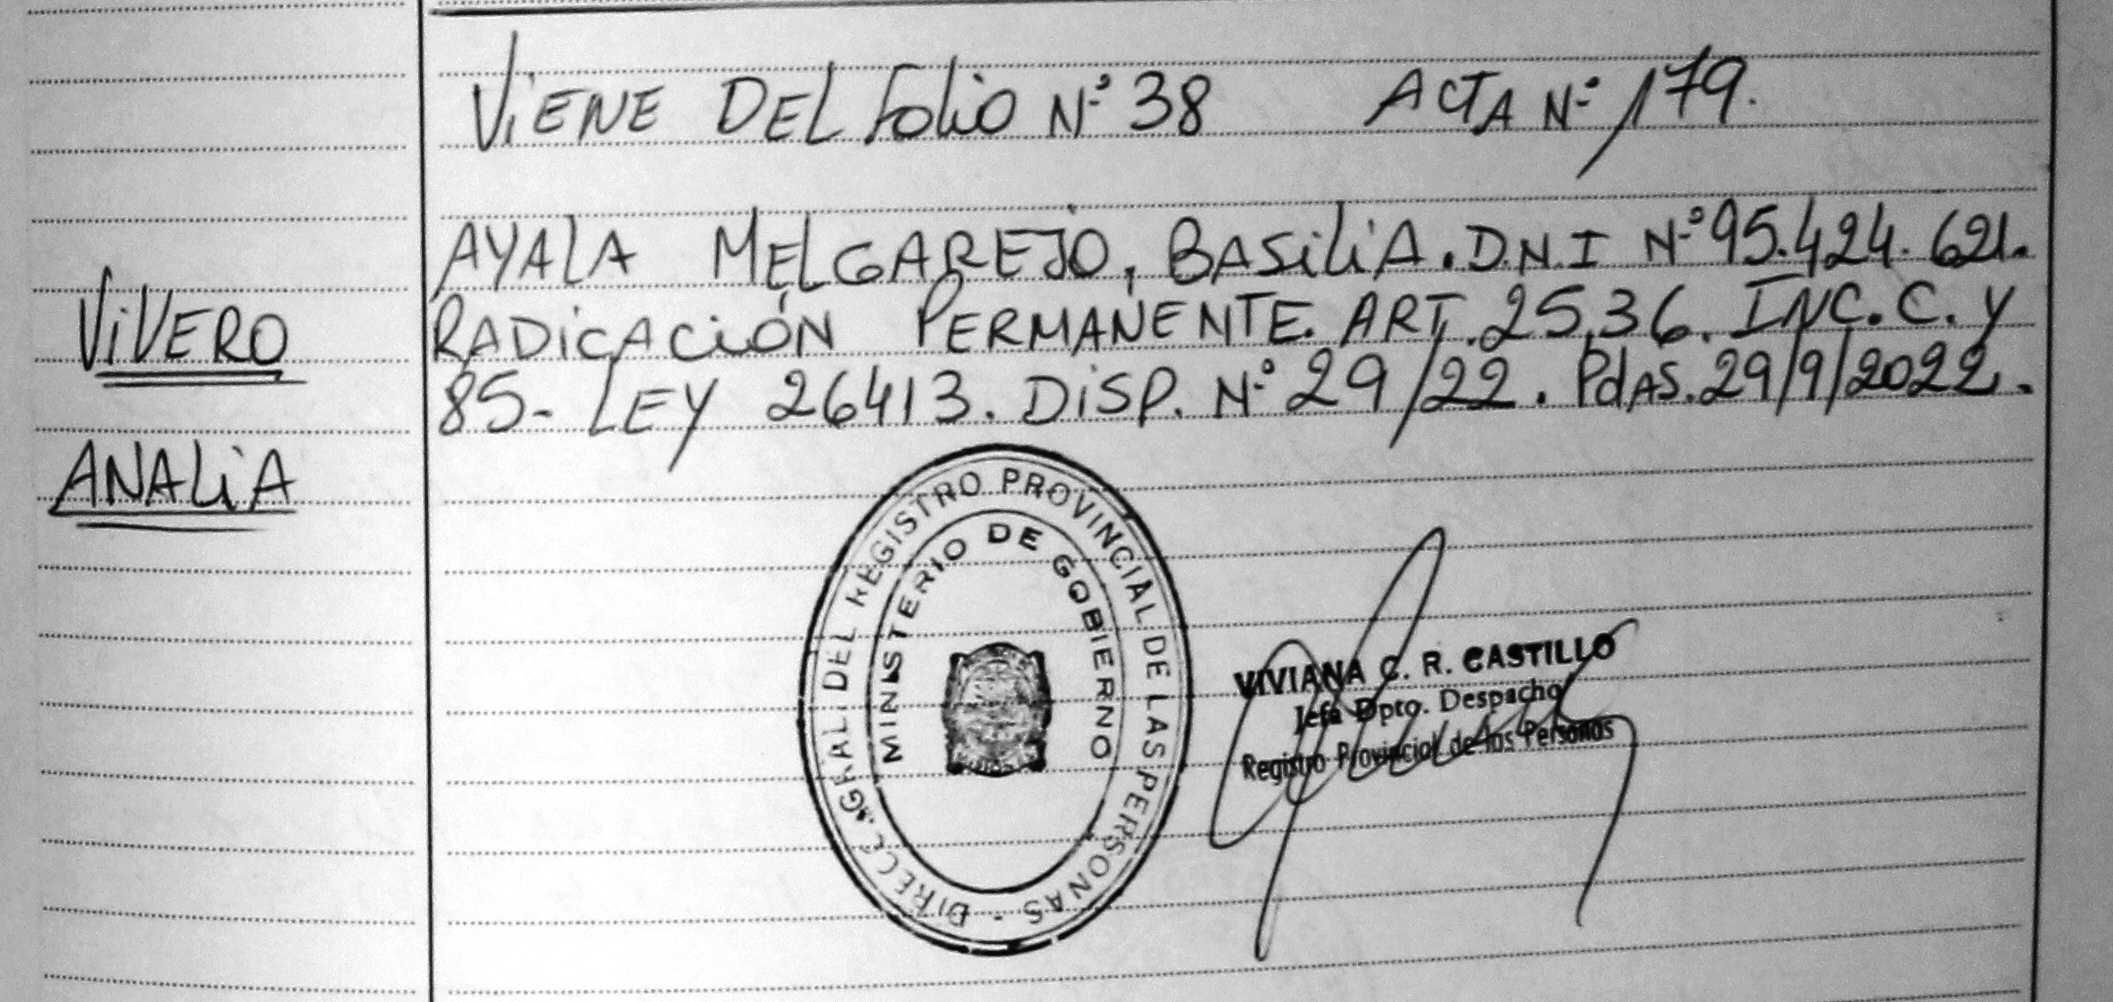 VIENE DEL FOLIO Nº 38 ACTA Nº 179.
AYALA MELGAREJO, BASILIA. D.N.I Nº 95.424.621.
RADICACIÓN PERMANENTE. ART. 25,36. INC. C. Y
85- LEY 26413. DISP. Nº 29/22. PdAS. 29/9/2022.
VIVERO
ANALIA
DIRECC. GRAL. DEL REGISTRO PROVINCIAL DE LAS PERSONAS -
MINISTERIO DE GOBIERNO
VIVIANA C. R. CASTILLO
Jefa Dpto. Despacho
Registro Provincial de las Personas